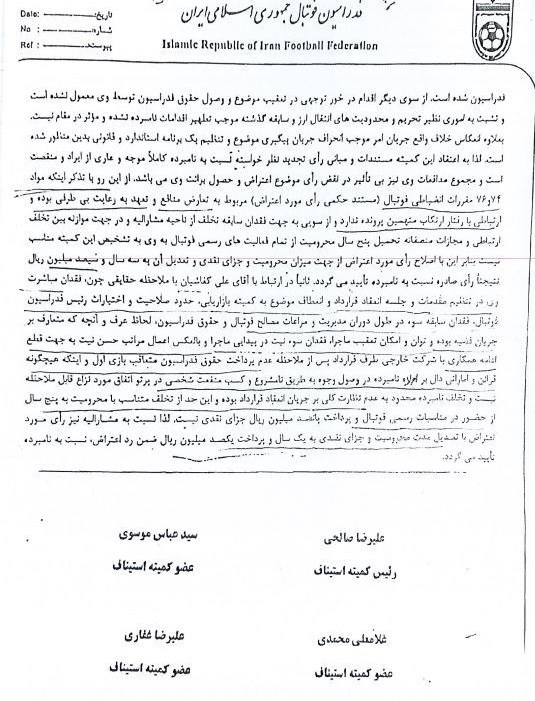 فدراسیون فوتبال جمهوری اسلامی ایران
Islamic Republic of Iran Football Federation
تاریخ:
پیوست:
Date:
No :
Ref :
فدراسیون شده است. از سوی دیگر اقدام در خور توجهی در تعقیب موضوع و وصول حقوق فدراسیون توسط وی معمول نشده است
و تشبث به اموری نظیر تحریم و محدودیت های انتقال ارز و سابقه گذشته موجب تطهیر اقدامات نامبرده نشده و مؤثر در مقام نیست.
بعلاوه انعکاس خلاف واقع جریان امر موجب انحراف جریان پیگیری موضوع و تنظیم یک برنامه استاندارد و قانونی بدین منظور شده
است. لذا به اعتقاد این کمیته مستندات و مبانی رأی تجدید نظر خواسته نسبت به نامبرده کاملاً موجه و عاری از ایراد و منقصت
است و مجموع مدافعات وی نیز بی تأثیر در نقض رأی موضوع اعتراض و حصول برائت وی می باشد. از این رو با تذکر اینکه مواد
۷۴و۷۶ مقررات انضباطی فوتبال (مستند حکمی رأی مورد اعتراض) مربوط به تعارض منافع و تعهد به رعایت بی طرفی بوده و
ارتباطی با رفتار ارتکاب متهمین پرونده ندارد و از سویی به جهت فقدان سابقه تخلف از ناحیه مشارالیه و در جهت موازنه بین تخلف
ارتباطی و مجازات منصفانه تحمیل پنج سال محرومیت از تمام فعالیت های رسمی فوتبال به وی به تشخیص این کمیته مناسب
نیست بنابر این با اصلاح رأی مورد اعتراض از جهت میزان محرومیت و جزای نقدی و تعدیل آن به سه سال و سیصد میلیون ریال
نتیجتاً رأی صادره نسبت به نامبرده تأیید می گردد. ثانیاً در ارتباط با آقای علی کفاشیان با ملاحظه حقایقی چون، فقدان مباشرت
وی در تنظیم مقدمات و جلسه انعقاد قرارداد و انعطاف موضوع به کمیته بازاریابی، حدود صلاحیت و اختیارات رئیس فدراسیون
فوتبال، فقدان سابقه سوء در طول دوران مدیریت و مراعات مصالح فوتبال و حقوق فدراسیون، لحاظ عرف و آنچه که متعارف بر
جریان قضیه بوده و توان و امکان تعقیب ماجرا، فقدان سوء نیت در پیدایی ماجرا و بالعکس اعمال مراتب حسن نیت به جهت قطع
ادامه همکاری با شرکت خارجی طرف قرارداد پس از ملاحظه عدم پرداخت حقوق فدراسیون متعاقب بازی اول و اینکه هیچگونه
قرائن و اماراتی دال بر اراده نامبرده در وصول وجوه به طریق نامشروع و کسب منفعت شخصی در پرتو اتفاق مورد نزاع قابل ملاحظه
نیست و تخلف نامبرده محدود به عدم نظارت کلی بر جریان انعقاد قرارداد بوده و این حد از تخلف متناسب با محرومیت به پنج سال
از حضور در مناسبات رسمی فوتبال و پرداخت پانصد میلیون ریال جزای نقدی نیست. لذا نسبت به مشارالیه نیز رأی مورد
اعتراض با تعدیل مدت محرومیت و جزای نقدی به یک سال و پرداخت یکصد میلیون ریال ضمن رد اعتراض، نسبت به نامبرده
تأیید می گردد.
علیرضا صالحی
رئیس کمیته استیناف
سید عباس موسوی
عضو کمیته استیناف
غلامعلی محمدی
عضو کمیته استیناف
علیرضا غفاری
عضو کمیته استیناف